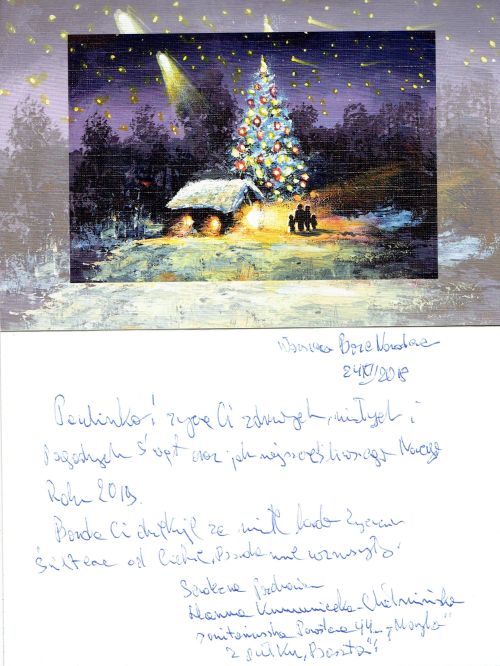 Warszawa Boże Narodzenie
24 XII 2018
Paulinko! życzę Ci zdrowych, miłych i
Pogodnych Świąt oraz jak najszczęśliwszego Nowego
Roku 2019.
Bardzo Ci dziękuję za miłe
Świąteczne od Ciebie, Bardzo mnie wzruszyły.
Serdecznie Pozdrawiam
Hanna
sanitariuszka Powstania 44 „
z pułku „Baszta”